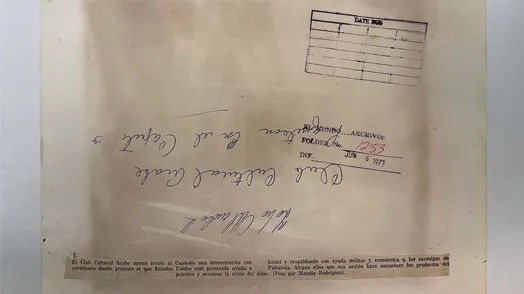 DATE DUE
EL MUNDO ARCHIVO
FOLDER No. 1253
INF. JUN 6 1979
Club Cultural Arabe
en el
El Club Cultural Arabe montó frente al Capitolio una demostración con
cartelones donde protestó el que Estados Unidos esté prestando ayuda a
Israel y respaldando con ayuda militar y económica a los enemigos de
Palestina. Alegan ellos que esa acción hace encarecer los productos del
petróleo y ocasiona la crisis del dólar. (Foto por Mandín Rodríguez)